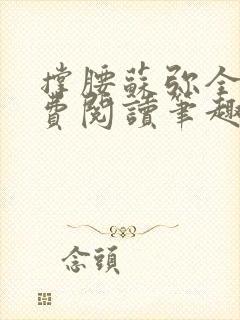 撐腰蘇弥全
費閱讀筆趣
念頭